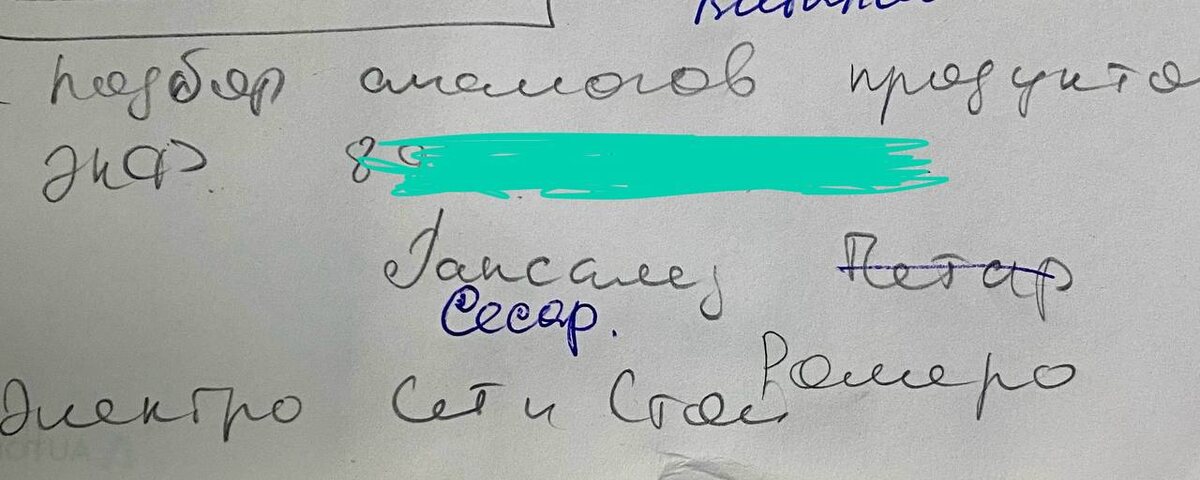 подбор аналогов продукто
ЭКФ. 89
Гансалез Петар
Сесар.
Ромеро
Электро Сети Стой